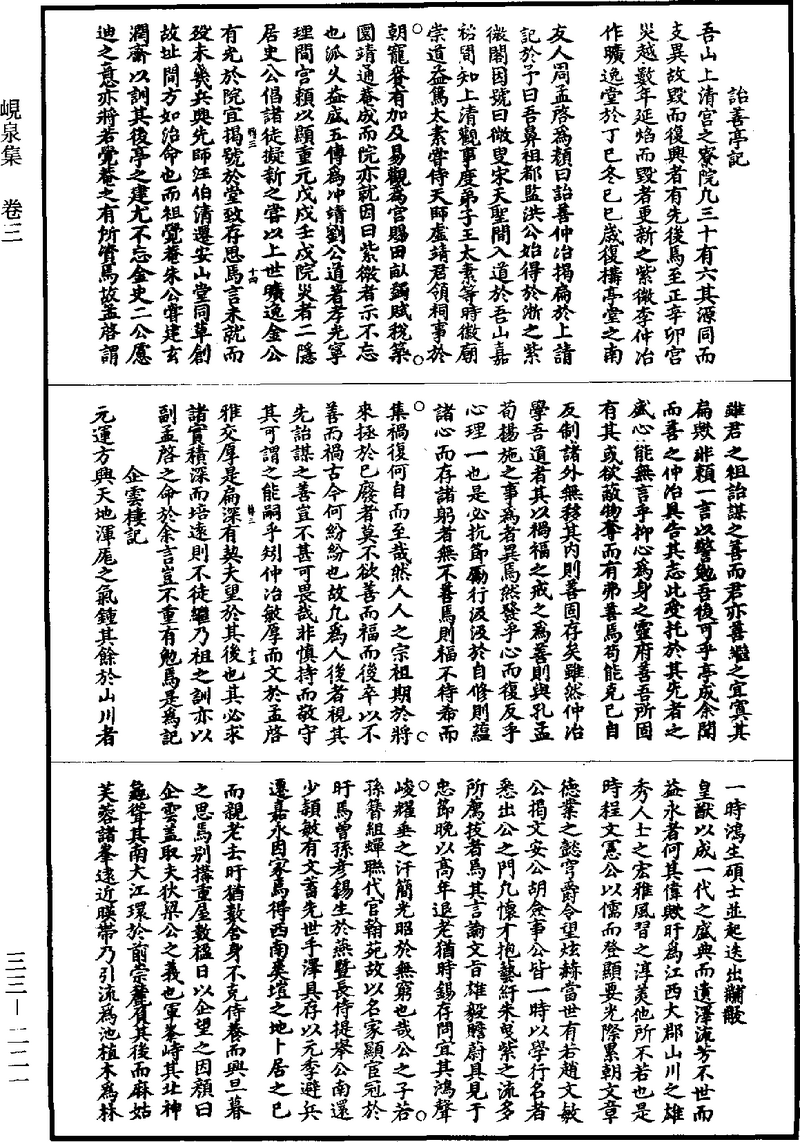 詒善亭記
吾山上清宮之寮院凡三十有六其源同而
支異故毀而復興者有先後焉至正辛卯宮
災越數年延焰而毀者更新之紫微李仲冶
作曠逸堂於丁巳冬己巳歲復構亭堂之南
友人周孟啓為顏曰詒善仲冶揭扁於上請
記於予曰吾鼻祖都監洪公始得於浙之紫
微閣因號曰微叟宋天聖間入道於吾山嘉
祐間知上清觀事度弟子王太素等時徽廟
崇道益篤太素嘗侍天師虛靖君領祠事於
朝寵賚有加及易觀為宮賜田畝蠲賦稅築
圜靖通菴成而院亦就因曰紫微者示不忘
也派久益盛五傳為冲靖劉公道著孝光寧
理間宮賴以顯重元戊戌壬戌院災者二隱
居史公倡諸徒擬新之嘗以上世曠逸金公
有光於院宜揭號於堂致存思焉言未就而
歿未幾兵興先師汪伯清遷安山堂同草創
故址間方如治命也而祖覺菴朱公嘗建玄
潤齋以訓其後亭之建尤不忘金史二公愿
迪之意亦將若覺菴之有所質焉故孟啓謂
雖君之祖詒謀之善而君亦善繼之宜寘其
扁歟非賴一言以警勉吾後可乎亭成余閱
而善之仲冶具告其志此受托於其先者之
盛心能無言乎抑心為身之靈府善吾所固
有其或欲敵物奪而有弗善焉苟能克己自
反制諸外無移其内則善固存矣雖然仲冶
學吾道者其以禍福之戒之為善則與孔孟
荀揚施之事為者異焉然發乎心而復反乎
心理一也是必抗節勵行汲汲於自修則蘊
諸心而存諸躬者無不善焉則福不待希而
集禍復何自而至哉然人人之宗祖期於將
來拯於已廢者莫不欲善而福而後卒以不
善而禍古今何紛紛也故凡為人後者視其
先詒謀之善豈不甚可畏哉非慎持而敬守
其可謂之能嗣乎矧仲冶敏厚而文於孟啓
雅交厚是扁深有契夫望於其後也其必求
諸實積深而培遠則不徒繼乃祖之訓亦以
副孟啓之命於余言豈不重有勉焉是為記
企雲樓記
元運方興天地渾厖之氣鍾其餘於山川者
一時鴻生碩士並起迭出黼黻
皇猷以成一代之盛典而遺澤流芳不世而
益永者何其偉歟盱為江西大郡山川之雄
秀人士之宏雅風習之淳美他所不若也是
時程文憲公以儒而登顯要光際累朝文章
德業之懿穹爵令望炫赫當世有若趙文敏
公揭文安公胡僉事公皆一時以學行名者
悉出公之門凡懷才抱藝紆朱曳紫之流多
所薦技者焉其言論文旨雄毅贍蔚具見于
忠節晚以高年退老猶時錫存問宜其鴻聲
峻耀垂之汗簡光昭於無窮也哉公之子若
孫簪組蟬聯代官翰苑故以名家顯宦冠於
盱焉曾孫彥錫生於燕暨長侍提舉公南還
少穎敏有文畜先世手澤具存以元季避兵
遷嘉永因家焉得西南爽塏之地卜居之已
而親老去盱猶數舍身不克侍養而興旦暮
之思焉别搆重屋數楹日以企望之因顏曰
企雲蓋取夫狄梁公之義也軍峯峙其北神
龜聳其南大江環於前崇麓負其後而麻姑
芙蓉諸峯遠近映帶乃引流為池植木為林
峴泉集　卷三
三三—二二一
十四
十五